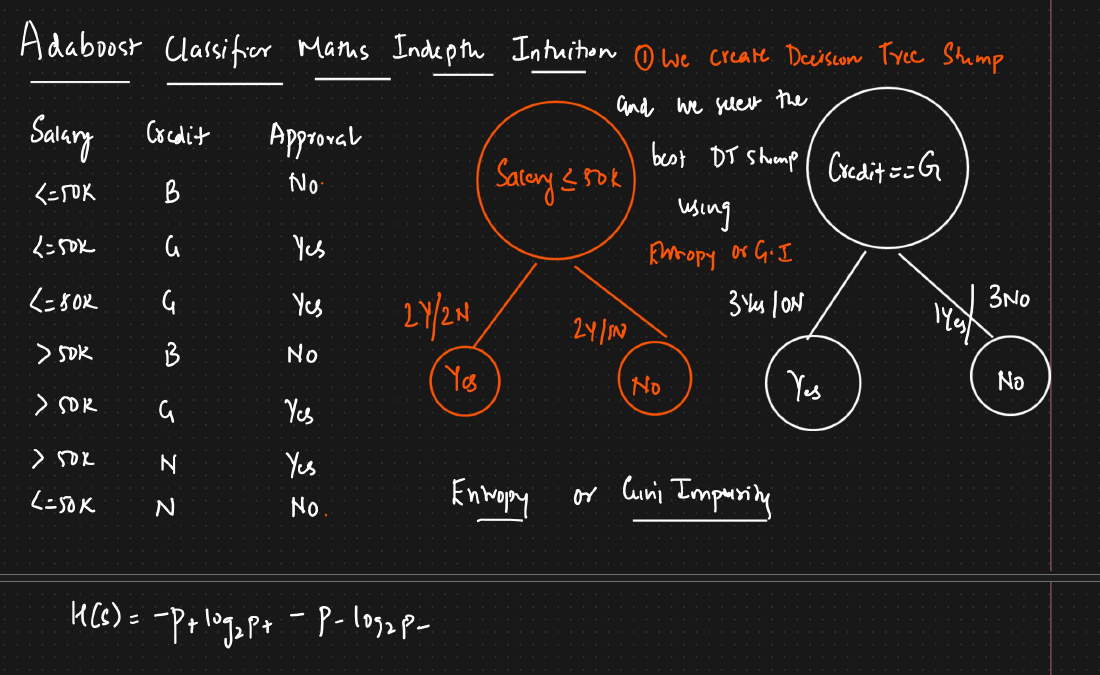 Adaboost Classifier Maths Indepth Intuition
① We create Decision Tree Stump
and we select the
best DT stump
using
Entropy or G.I
Salary Credit Approval
<=50K B No
<=50K G Yes
<=50K G Yes
>50K B No
>50K G Yes
>50K N Yes
<=50K N No
Salary ≤ 50K
2Y/2N
2Y/1N
Yes
No
Credit==G
3Yes/0N
1Yes/3No
Yes
No
Entropy or Gini Impurity
H(S) = -P+ log2 P+ - P- log2 P-